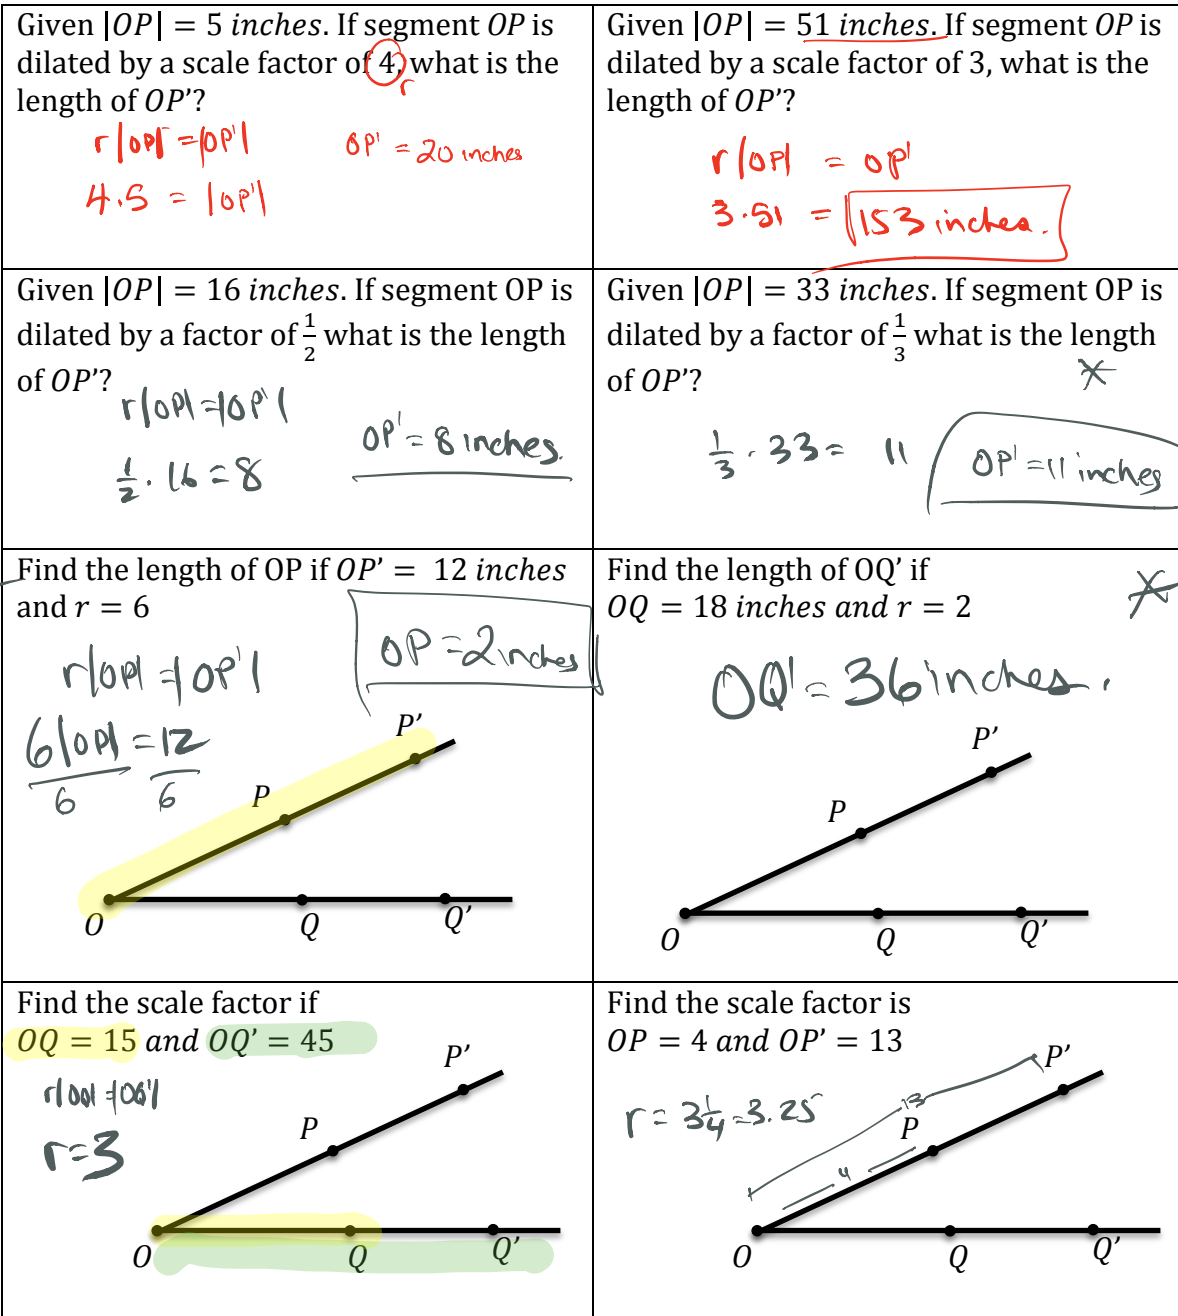 Given |OP| = 5 inches. If segment OP is
dilated by a scale factor of 4, what is the
length of OP'?
r
r|OP| = |OP'|
OP' = 20 inches
4.5 = |OP'|
Given |OP| = 51 inches. If segment OP is
dilated by a scale factor of 3, what is the
length of OP'?
r|OP| = OP'
3·51 = 153 inches.
Given |OP| = 16 inches. If segment OP is
dilated by a factor of 1/2 what is the length
of OP'?
r|OP|=|OP'|
OP' = 8 inches.
1/2 · 16 = 8
Given |OP| = 33 inches. If segment OP is
dilated by a factor of 1/3 what is the length
of OP'?
1/3 · 33 = 11
OP' = 11 inches
Find the length of OP if OP' = 12 inches
and r = 6
OP = 2 inches
r|OP| = |OP'|
6|OP| = 12
6 6
P'
P
O
Q
Q'
Find the length of OQ' if
OQ = 18 inches and r = 2
OQ' = 36 inches.
P'
P
O
Q
Q'
Find the scale factor if
OQ = 15 and OQ' = 45
r|OQ| = |OQ'|
r=3
P'
P
O
Q
Q'
Find the scale factor is
OP = 4 and OP' = 13
r = 3 1/4 = 3.25
13
4
P'
P
O
Q
Q'